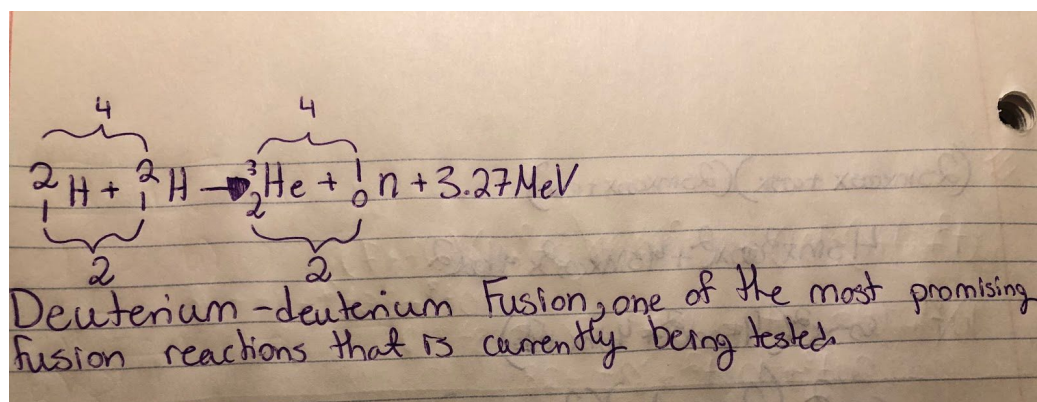 4 4
²₁H + ²₁H → ³₂He + ¹₀n + 3.27MeV
2 2
Deuterium-deuterium Fusion, one of the most promising
fusion reactions that is currently being tested.